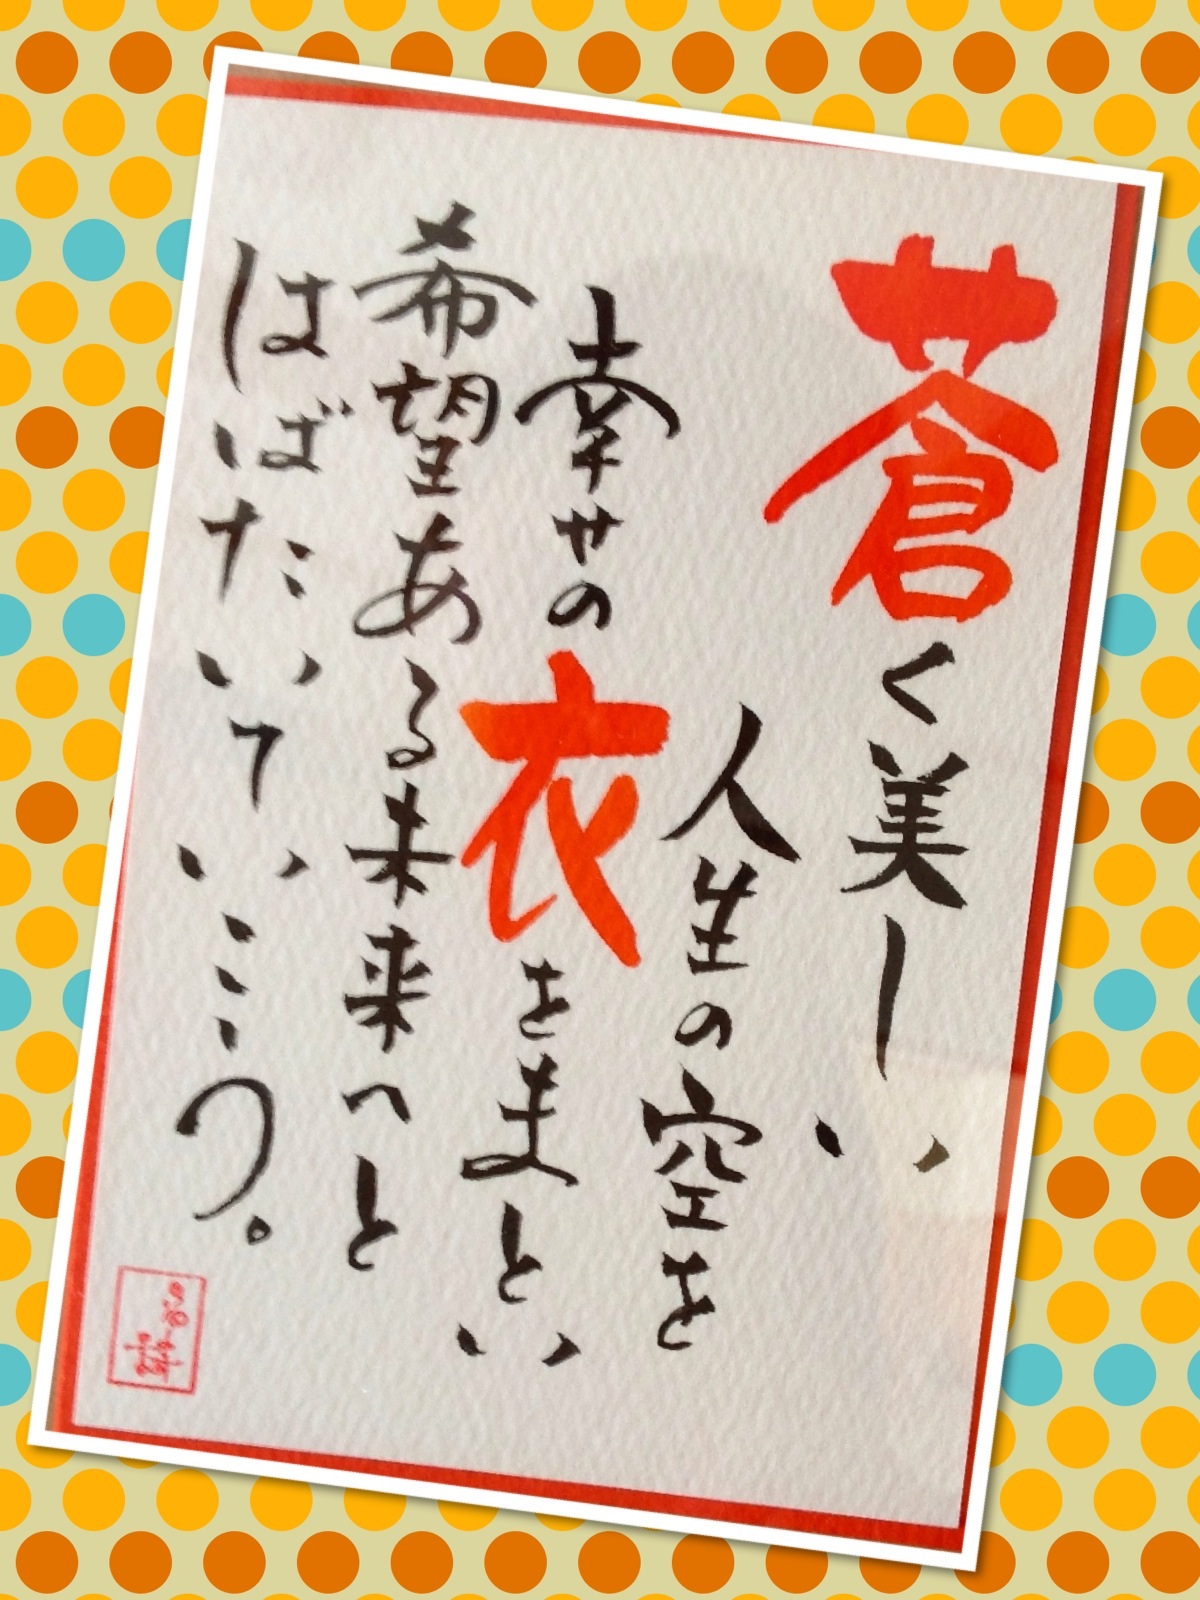 蒼く美しい
人生の空を
幸せの衣をまとい
希望ある未来へと
はばたいていこう。